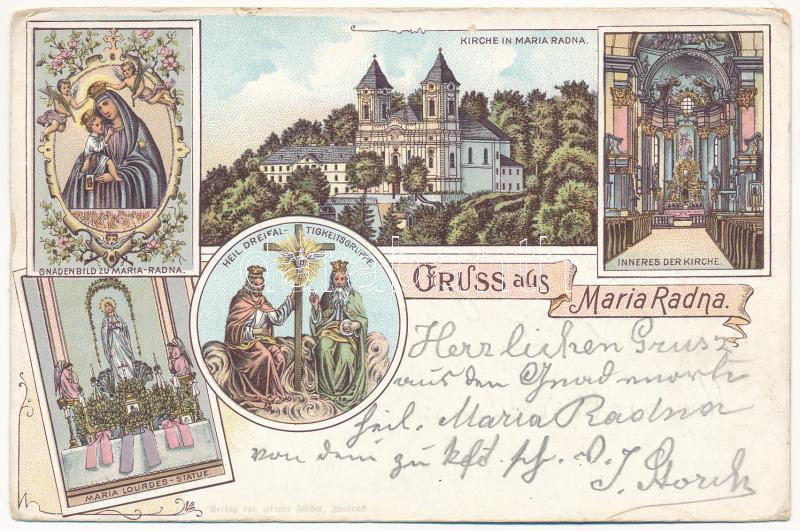 KIRCHE IN MARIA RADNA.
GNADENBILD ZU MARIA-RADNA.
INNERES DER KIRCHE.
HEIL. DREIFAL- TIGKEITSGRUPPE.
GRUSS aus
Maria Radna.
MARIA LOURDES-STATUE
Herzlichen Gruss
aus dem Gnadenorte
heil. Maria Radna
von dem zu
J. Storch
Verlag von Gregor Fischer, Innsbruck.